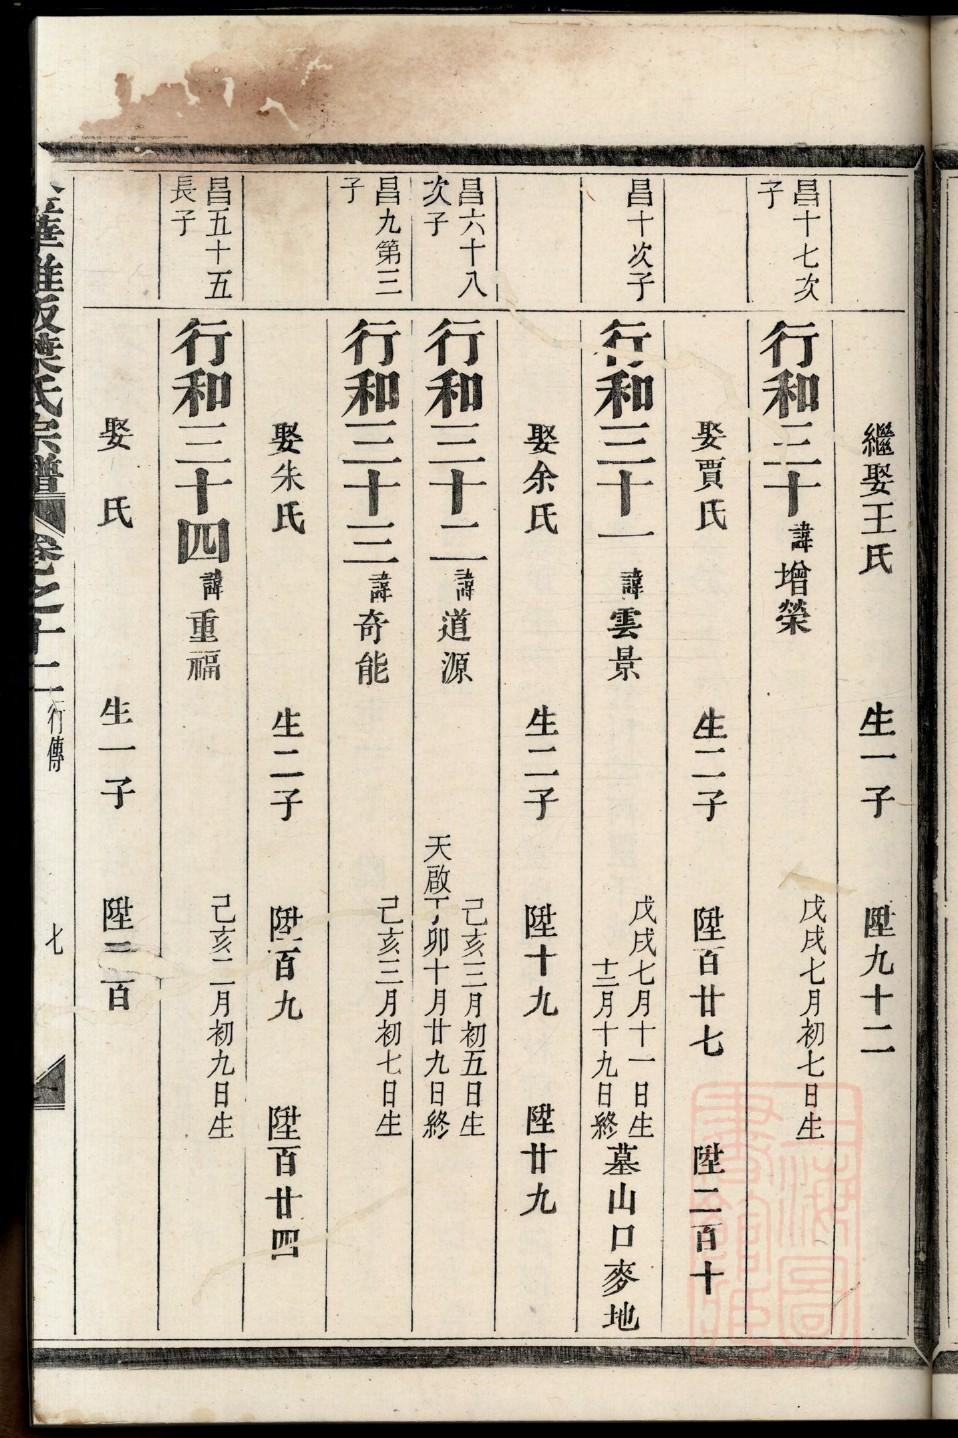 繼娶王氏 生一子 陞九十二
昌十七次子
行和三十 諱增榮 戊戌七月初七日生
娶賈氏 生二子 陞百廿七 陞二百十
昌十次子
行和三十一 諱雲景 戊戌七月十一日生 十二月十九日終 墓山口麥地
娶余氏 生二子 陞十九 陞廿九
昌六十八次子
行和三十二 諱道源 己亥三月初五日生 天啟丁卯十月廿九日終
昌九第三子
行和三十三 諱奇能 己亥三月初七日生
娶朱氏 生二子 陞百九 陞百廿四
昌五十五長子
行和三十四 諱重福 己亥二月初九日生
娶 氏 生一子 陞二百
華雅畈葉氏宗譜 卷之十二 行傳 七